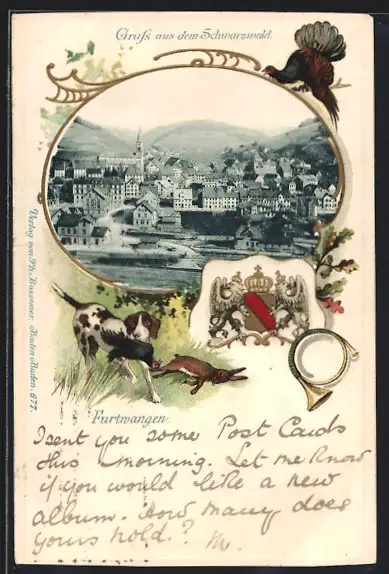 Gruß aus dem Schwarzwald.
Verlag von Ph. Bussemer, Baden-Baden. 877.
Furtwangen.
I sent you some Post Cards
this morning. Let me know
if you would like a new
album. How many does
yours hold.? M.